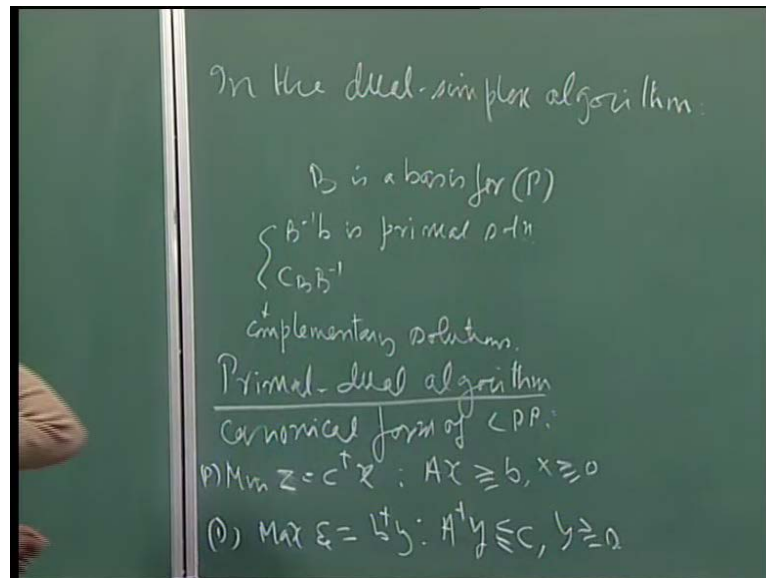 In the dual-simplex algorithm:
B is a basis for (P)
{ B⁻¹b is primal soln
C_B B⁻¹
complementary solutions.
Primal-dual algorithm
canonical form of LPP:
(P) Min z = cᵗx : Ax ≥ b, x ≥ 0
(D) Max ξ = bᵗy : Aᵗy ≤ c, y ≥ 0